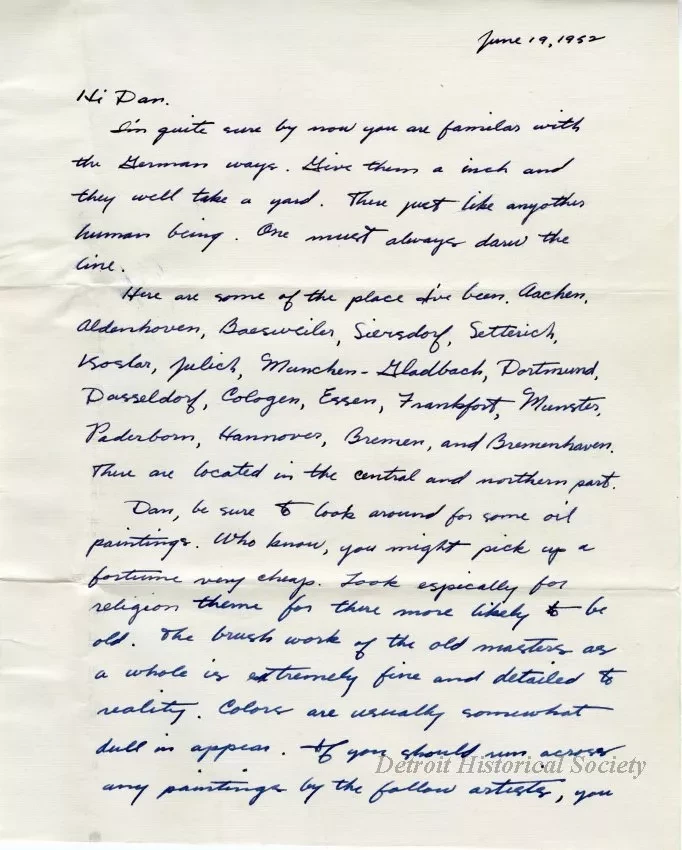 June 19, 1952
Hi Dan.
I'm quite sure by now you are familar with
the German ways. Give them a inch and
they well take a yard. There just like anyother
human being. One must always darw the
line.
Here are some of the place I've been. Aachen,
Aldenhoven, Baesweiler, Siersdorf, Setterich,
Koslar, Julich, Munchen-Gladbach, Dortmund,
Dusseldorf, Cologen, Essen, Frankfort, Munster,
Paderborn, Hannover, Bremen, and Bremenhaven.
There are located in the central and northern part.
Dan, be sure to look around for some oil
paintings. Who know, you might pick up a
fortune very cheap. Look espically for
religion theme for there more likely to be
old. The brush work of the old masters as
a whole is extremely fine and detailed to
reality. Colors are usually somewhat
dull in appear. If you should run across
any paintings by the follow artists, you
Detroit Historical Society